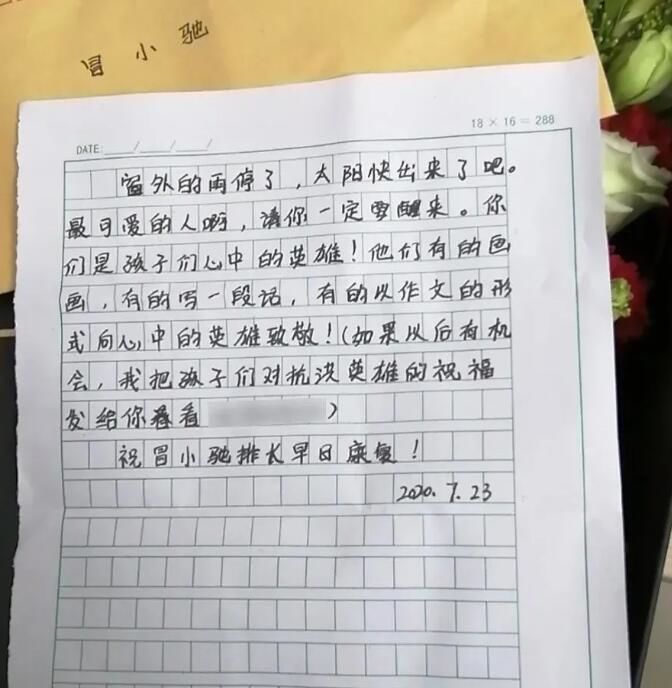 冒小驰
18 × 16 = 288
DATE: ____/____/____
窗外的雨停了，太阳快出来了吧。
最可爱的人啊，请你一定要醒来。你
们是孩子们心中的英雄！他们有的画
画，有的写一段话，有的以作文的形
式向心中的英雄致敬！（如果以后有机
会，我把孩子们对抗洪英雄的祝福
发给你看看）
祝冒小驰排长早日康复！
2020.7.23